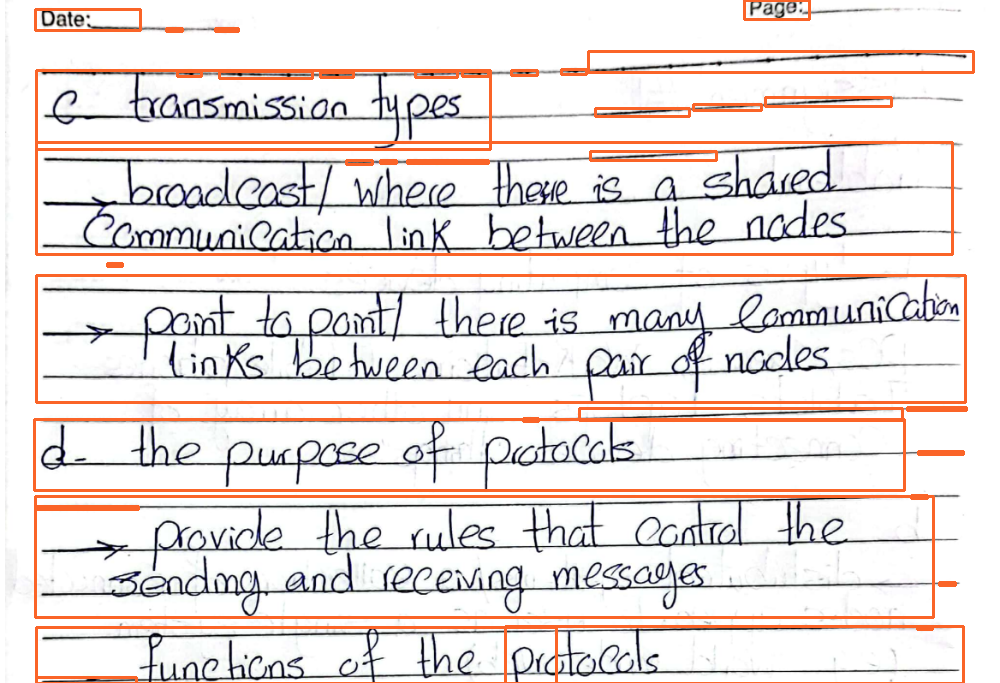 Date:
Page:
c- transmission types
→ broadcast/ where there is a shared
Communication link between the nodes
→ point to point/ there is many Communication
links between each pair of nodes
d- the purpose of protocols
→ provide the rules that control the
sending and receiving messages
functions of the protocols